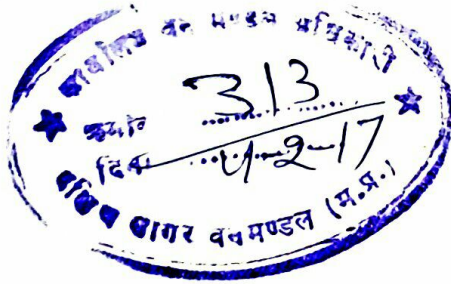 कार्यालय वन मण्डल अधिकारी
क्रमांक 313
दिनांक 4-2-17
दक्षिण सागर वनमण्डल (म.प्र.)